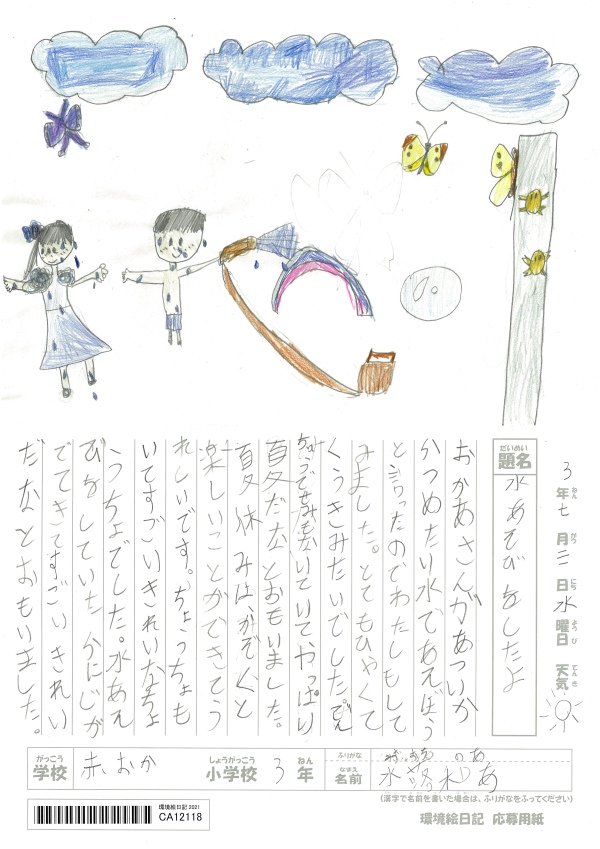 3年七月三日水曜日 天気
ねん がつ にち ようび てんき
だいめい
題名
水あそびをしたよ
おかあさんがあついか
らつめたい水であえぼう
と言ったのでわたしもして
みました。とてもひやくて
くうきみたいでした。でん
ちゅうでせみもないていてやっぱり
夏だなとおもいました。
夏休みは、かぞくと
楽しいことができてう
れしいです。ちょうちょも
いてすごいきれいなちょ
うちょでした。水あえ
びをしていたらにじが
でてきてすごいきれい
だなとおもいました。
がっこう
学校
赤おか
しょうがっこう
小学校
3
ねん
年
ふりがな
のあ
なまえ
名前
(漢字で名前を書いた場合は、ふりがなをふってください)
環境絵日記 2021
CA12118
環境絵日記 応募用紙